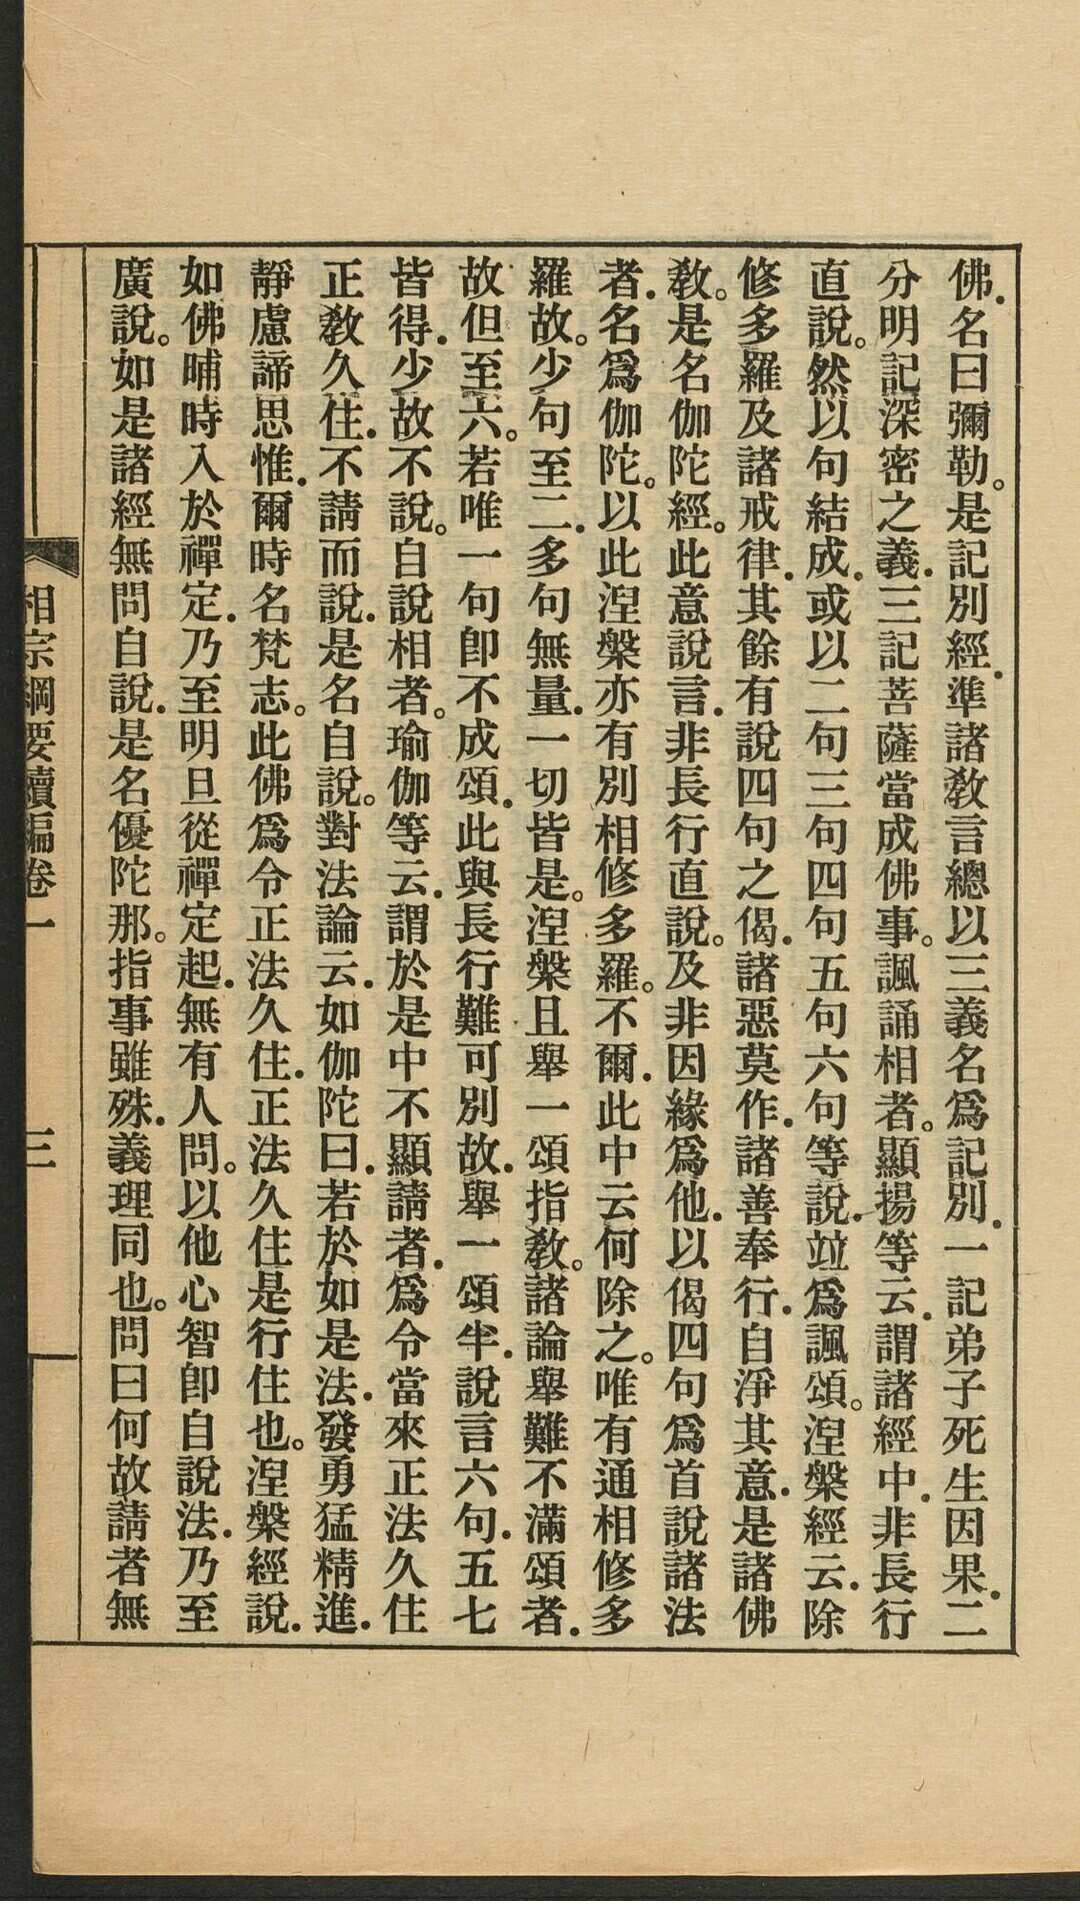 佛.名曰彌勒。是記別經.準諸敎言總以三義名爲記別.一記弟子死生因果.二
分明記深密之義.三記菩薩當成佛事。諷誦相者。顯揚等云.謂諸經中.非長行
直說。然以句結成.或以二句三句四句五句六句等說.竝爲諷頌。涅槃經云.除
修多羅及諸戒律.其餘有說四句之偈.諸惡莫作.諸善奉行.自淨其意.是諸佛
敎。是名伽陀經。此意說言.非長行直說。及非因緣爲他.以偈四句爲首說諸法
者.名爲伽陀。以此涅槃亦有別相修多羅。不爾.此中云何除之。唯有通相修多
羅故。少句至二.多句無量.一切皆是。涅槃且舉一頌指敎。諸論舉難不滿頌者.
故但至六。若唯一句卽不成頌.此與長行難可別故.舉一頌半.說言六句.五七
皆得.少故不說。自說相者。瑜伽等云.謂於是中不顯請者.爲令當來正法久住
正敎久住.不請而說.是名自說。對法論云.如伽陀曰.若於如是法.發勇猛精進.
靜慮諦思惟.爾時名梵志。此佛爲令正法久住.正法久住是行住也。涅槃經說.
如佛晡時入於禪定.乃至明旦從禪定起.無有人問。以他心智卽自說法.乃至
廣說。如是諸經無問自說.是名優陀那。指事雖殊.義理同也。問曰何故請者無
相宗綱要續編卷一 三